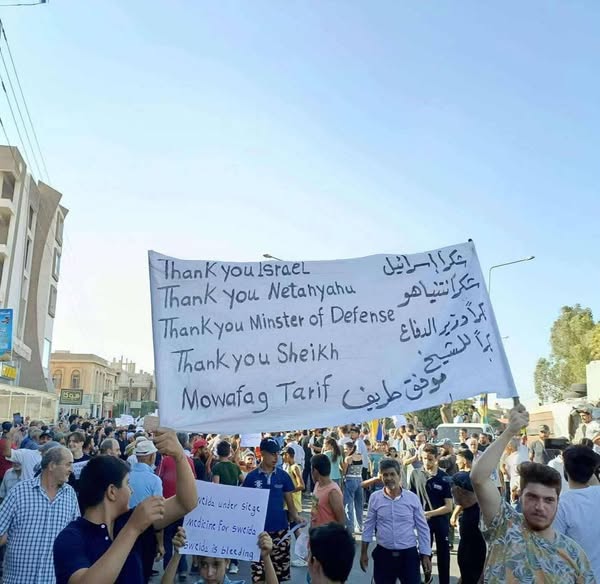 Thank you Israel
Thank you Netanyahu
Thank you Minster of Defense
Thank you Sheikh
Mowafag Tarif
شكراً اسرائيل
شكراً نتنياهو
شكراً وزير الدفاع
شكراً للشيخ
موفق طريف
sweida under siege
medicine for sweida
sweida is bleeding